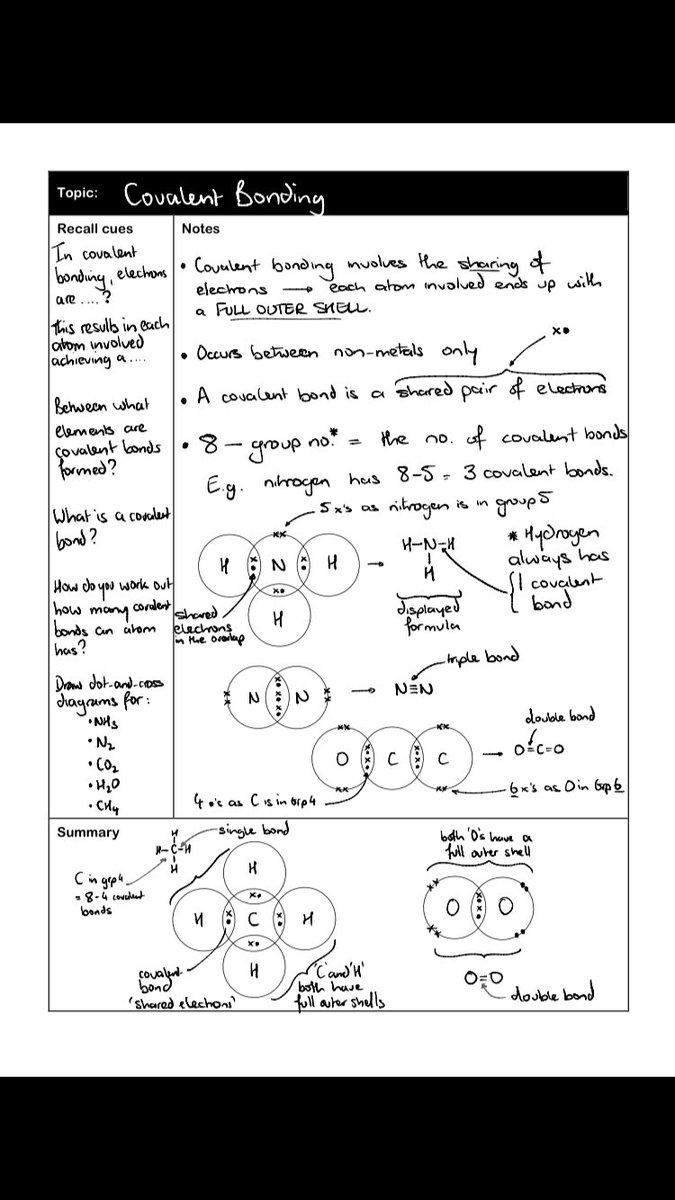 Topic: Covalent Bonding
Recall cues
In covalent
bonding, electrons
are ....?
This results in each
atom involved
achieving a ....
Between what
elements are
covalent bonds
formed?
What is a covalent
bond?
How do you work out
how many covalent
bonds an atom
has?
Draw dot-and-cross
diagrams for:
• NH₃
• N₂
• CO₂
• H₂O
• CH₄
Notes
• Covalent bonding involves the sharing of
electrons → each atom involved ends up with
a FULL OUTER SHELL.
• Occurs between non-metals only
x•
• A covalent bond is a shared pair of electrons
• 8 - group no.* = the no. of covalent bonds
E.g. nitrogen has 8-5 = 3 covalent bonds.
5 x's as nitrogen is in group 5
H N H
H
shared
electrons
in the overlap
→ H-N-H
H
displayed
formula
* Hydrogen
always has
1 covalent
bond
triple bond
N N → N≡N
double bond
O C C → O=C=O
4 •'s as C is in Grp 4
6 x's as O in Grp 6
Summary
H
H-C-H
H
single bond
C in grp 4
= 8-4 covalent
bonds
H
H C H
H
covalent
bond
'shared electrons'
'C' and 'H'
both have
full outer shells
both 'O's have a
full outer shell
O O
O=O
double bond